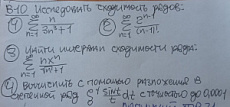 В-10 Исследовать сходимость рядов:
① ∞ Σ n=1 n / 3n³+1 ② ∞ Σ n=1 2ⁿ⁻¹ / (n-1)!
③ Найти интервал сходимости ряда:
∞ Σ n=1 nxⁿ / 7n²+1
④ Вычислить с помощью разложения в
степенной ряд ∫ sin t / t dt с точностью до 0,0001